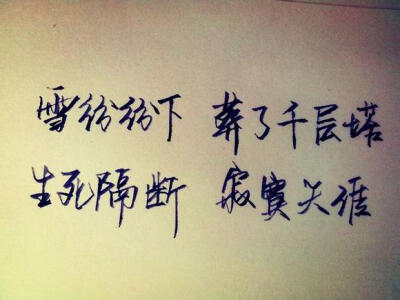 雪纷纷下 葬了千层塔
生死隔断 寂寞天涯